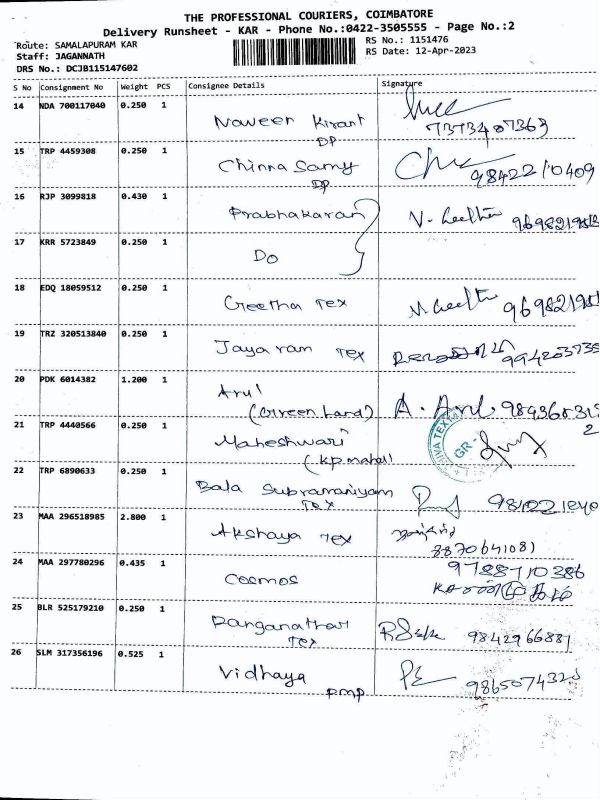 THE PROFESSIONAL COURIERS, COIMBATORE
Delivery Runsheet - KAR - Phone No.:0422-3505555 - Page No.:2
Route: SAMALAPURAM KAR
Staff: JAGANNATH
DRS No.: DCJB115147602
RS No.: 1151476
RS Date: 12-Apr-2023
S No Consignment No Weight PCS Consignee Details Signature
14 NDA 700117040 0.250 1 Naveen Kirant
DP
7373407363
15 TRP 4459308 0.250 1 Chinna Samy
DP
9842210409
16 RJP 3099818 0.430 1 Prabhakaran V.
17 KRR 5723849 0.250 1 Do
18 EDQ 18059512 0.250 1 Geetha Tex
19 TRZ 320513840 0.250 1 Jaya ram Tex
20 PDK 6014382 1.200 1 Arul
(Green Land) A. Arul
21 TRP 4440566 0.250 1 Maheshwari
(KP mahal) GR -
22 TRP 6890633 0.250 1 Bala Subramaniyam
Tex
23 MAA 296518985 2.800 1 Akshaya Tex
8870641081
24 MAA 297780296 0.435 1 Cosmos 9788710386
25 BLR 525179210 0.250 1 Ranganathar
Tex 9842966881
26 SLM 317356196 0.525 1 Vidhaya
pmp 9865074328